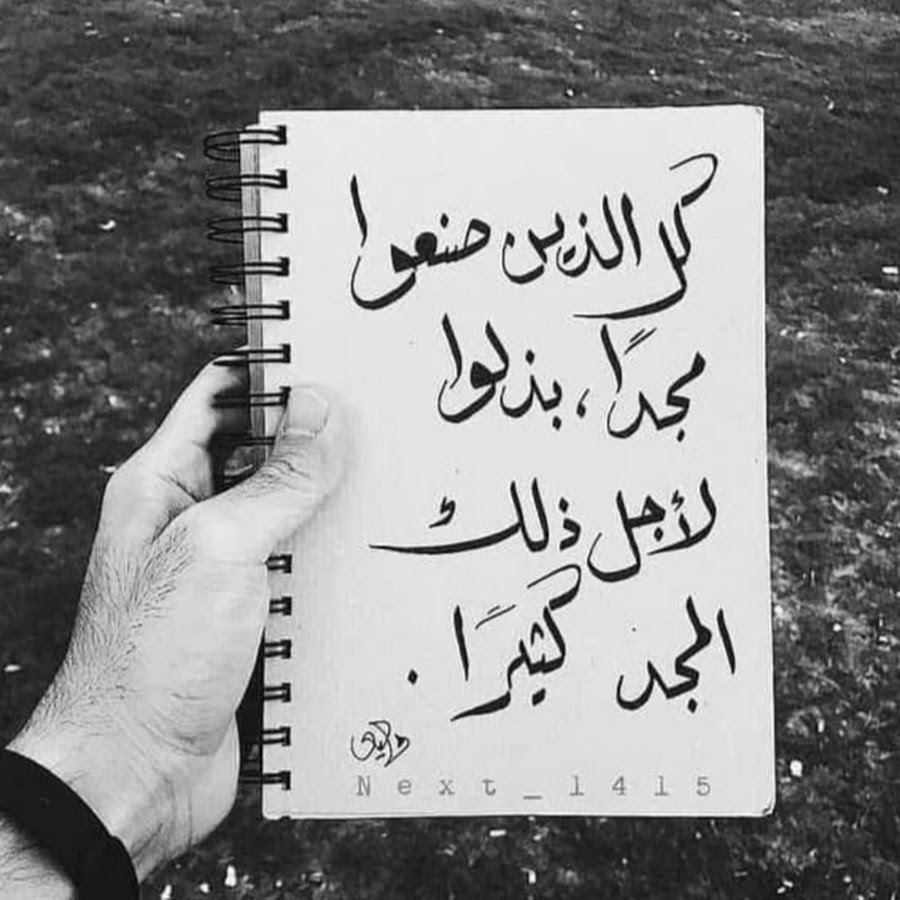 كل الذين صنعوا
مجدًا، بذلوا
لأجل ذلك
المجد كثيرًا.
Next_1415